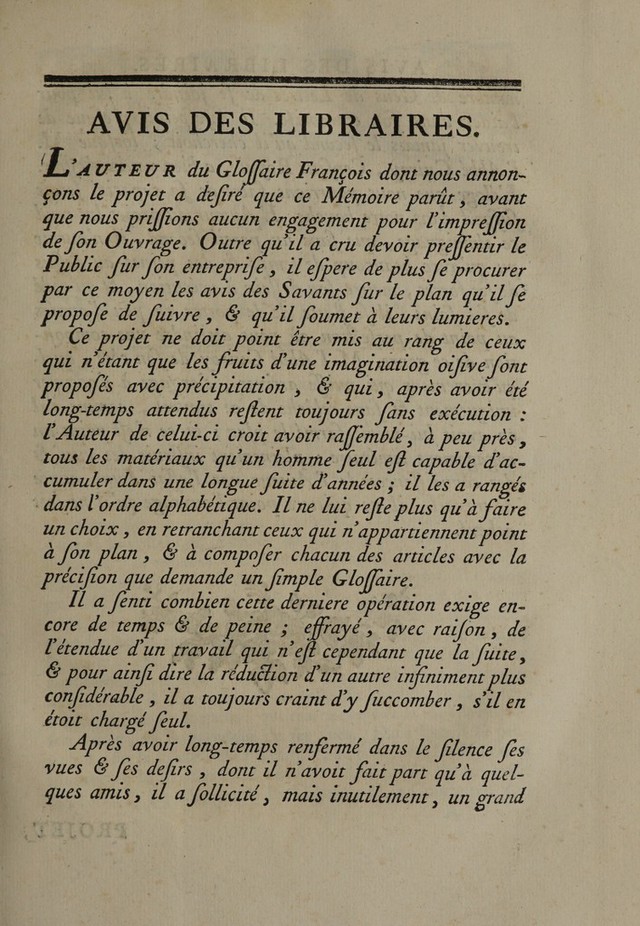 AVIS DES LIBRAIRES.
L'AUTEUR du Gloſſaire François dont nous annon-
çons le projet a deſiré que ce Mémoire parût, avant
que nous priſſions aucun engagement pour l'impreſſion
de ſon Ouvrage. Outre qu'il a cru devoir preſſentir le
Public ſur ſon entrepriſe, il eſpere de plus ſe procurer
par ce moyen les avis des Savants ſur le plan qu'il ſe
propoſe de ſuivre, & qu'il ſoumet à leurs lumieres.
Ce projet ne doit point être mis au rang de ceux
qui n'étant que les fruits d'une imagination oiſive ſont
propoſés avec précipitation, & qui, après avoir été
long-temps attendus reſtent toujours ſans exécution :
l'Auteur de celui-ci croit avoir raſſemblé, à peu près,
tous les matériaux qu'un homme ſeul eſt capable d'ac-
cumuler dans une longue ſuite d'années ; il les a rangés
dans l'ordre alphabétique. Il ne lui reſte plus qu'à faire
un choix, en retranchant ceux qui n'appartiennent point
à ſon plan, & à compoſer chacun des articles avec la
préciſion que demande un ſimple Gloſſaire.
Il a ſenti combien cette derniere opération exige en-
core de temps & de peine ; effrayé, avec raiſon, de
l'étendue d'un travail qui n'eſt cependant que la ſuite,
& pour ainſi dire la réduction d'un autre infiniment plus
conſidérable, il a toujours craint d'y ſuccomber, s'il en
étoit chargé ſeul.
Après avoir long-temps renfermé dans le ſilence ſes
vues & ſes deſirs, dont il n'avoit fait part qu'à quel-
ques amis, il a ſollicité, mais inutilement, un grand